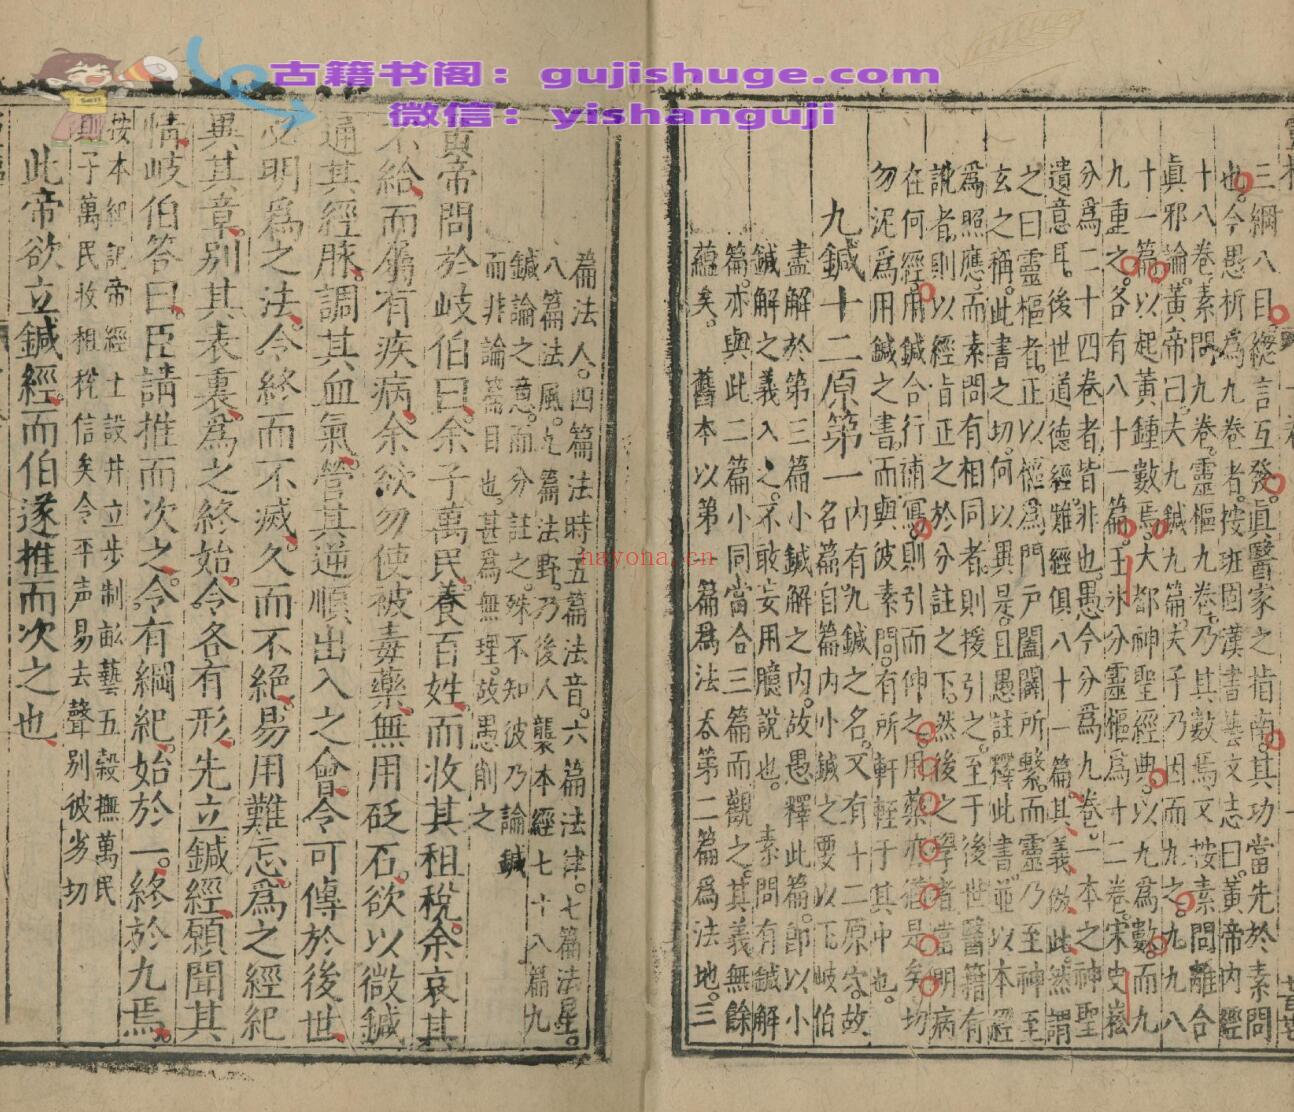 古籍书阁：gujishuge.com
微信：yishanguji
nayona.cn
三綱八目總言互發真醫家之指南其功當先於素問
也今愚析為九卷者按班固漢書藝文志曰黃帝內經
十八卷素問九卷靈樞九卷乃其數焉又按素問離合
真邪論黃帝曰夫九鍼九篇夫子乃因而九之九九八
十一篇以起黃鍾數焉大都神聖經典以九為數而九
九重之各有八十一篇王冰分靈樞為十二卷宋史崧
分為二十四卷者皆非也愚今分為九卷一本之神聖
遺意耳後世道德經難經俱八十一篇其義倣此然謂
之曰靈樞者正以樞為門戶闔闢所繫而靈乃至神至
玄之稱此書之切何以異是且愚註釋此書並以本經
為照應而素問有相同者則援引之至于後世醫籍有
說者則以經旨正之於分註之下然後之學者當明病
在何經用鍼合行補瀉則引而伸之用藥亦猶是矣切
勿泥為用鍼之書而與彼素問有所軒輊于其中也
九鍼十二原第一 內有九鍼之名又有十二原穴故
名篇自篇內小鍼之要以下岐伯
盡解於第三篇小鍼解之內故愚釋此篇即以小
鍼解之義入之不敢妄用臆說也 素問有鍼解
篇亦與此二篇小同當合三篇而觀之其義無餘
蘊矣 舊本以第一篇為法天第二篇為法地三
篇法人四篇法時五篇法音六篇法律七篇法星
八篇法風九篇法野乃後人襲本經七十八篇九
鍼論之意而分註之殊不知彼乃論鍼
而非論篇目也甚為無理故愚削之
黃帝問於岐伯曰余子萬民養百姓而收其租稅余哀其
不給而屬有疾病余欲勿使被毒藥無用砭石欲以微鍼
通其經脉調其血氣營其逆順出入之會令可傳於後世
必明為之法令終而不滅久而不絕易用難忘為之經紀
異其章別其表裏為之終始令各有形先立鍼經願聞其
情岐伯答曰臣請推而次之令有綱紀始於一終於九焉
按本紀記帝經土設井立步制畝藝五穀撫萬民
則子萬民收租稅信矣令平声易去聲別彼劣切
此帝欲立鍼經而伯遂推而次之也